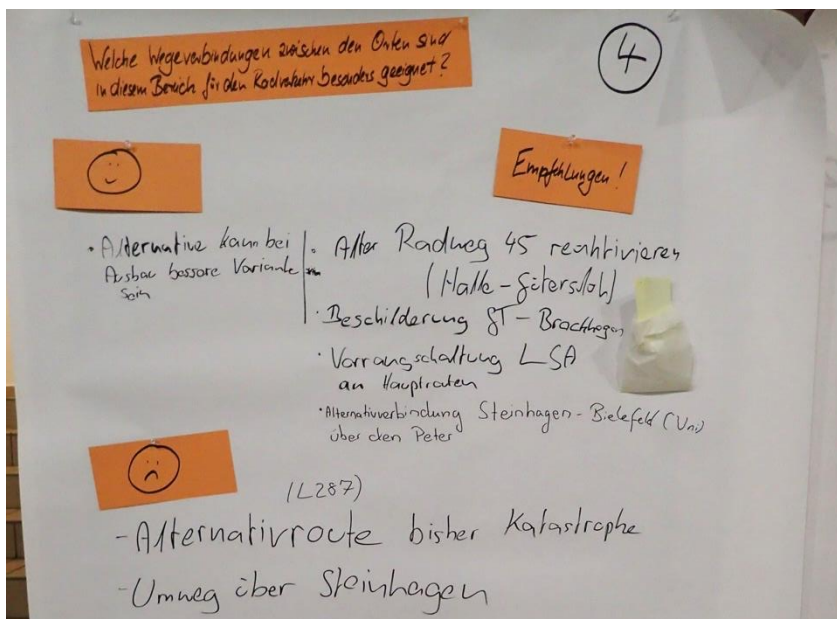 Welche Wegeverbindungen zwischen den Orten sind
in diesem Bereich für den Radverkehr besonders geeignet?
4
Empfehlungen!
• Alternative kann bei
Ausbau bessere Variante
sein
• Alter Radweg 45 reaktivieren
(Halle - Gütersloh)
• Beschilderung GT - Brackhagen
• Vorrangschaltung LSA
an Hauptrouten
• Alternativverbindung Steinhagen - Bielefeld (Uni)
über den Peter
(L287)
- Alternativroute bisher Katastrophe
- Umweg über Steinhagen